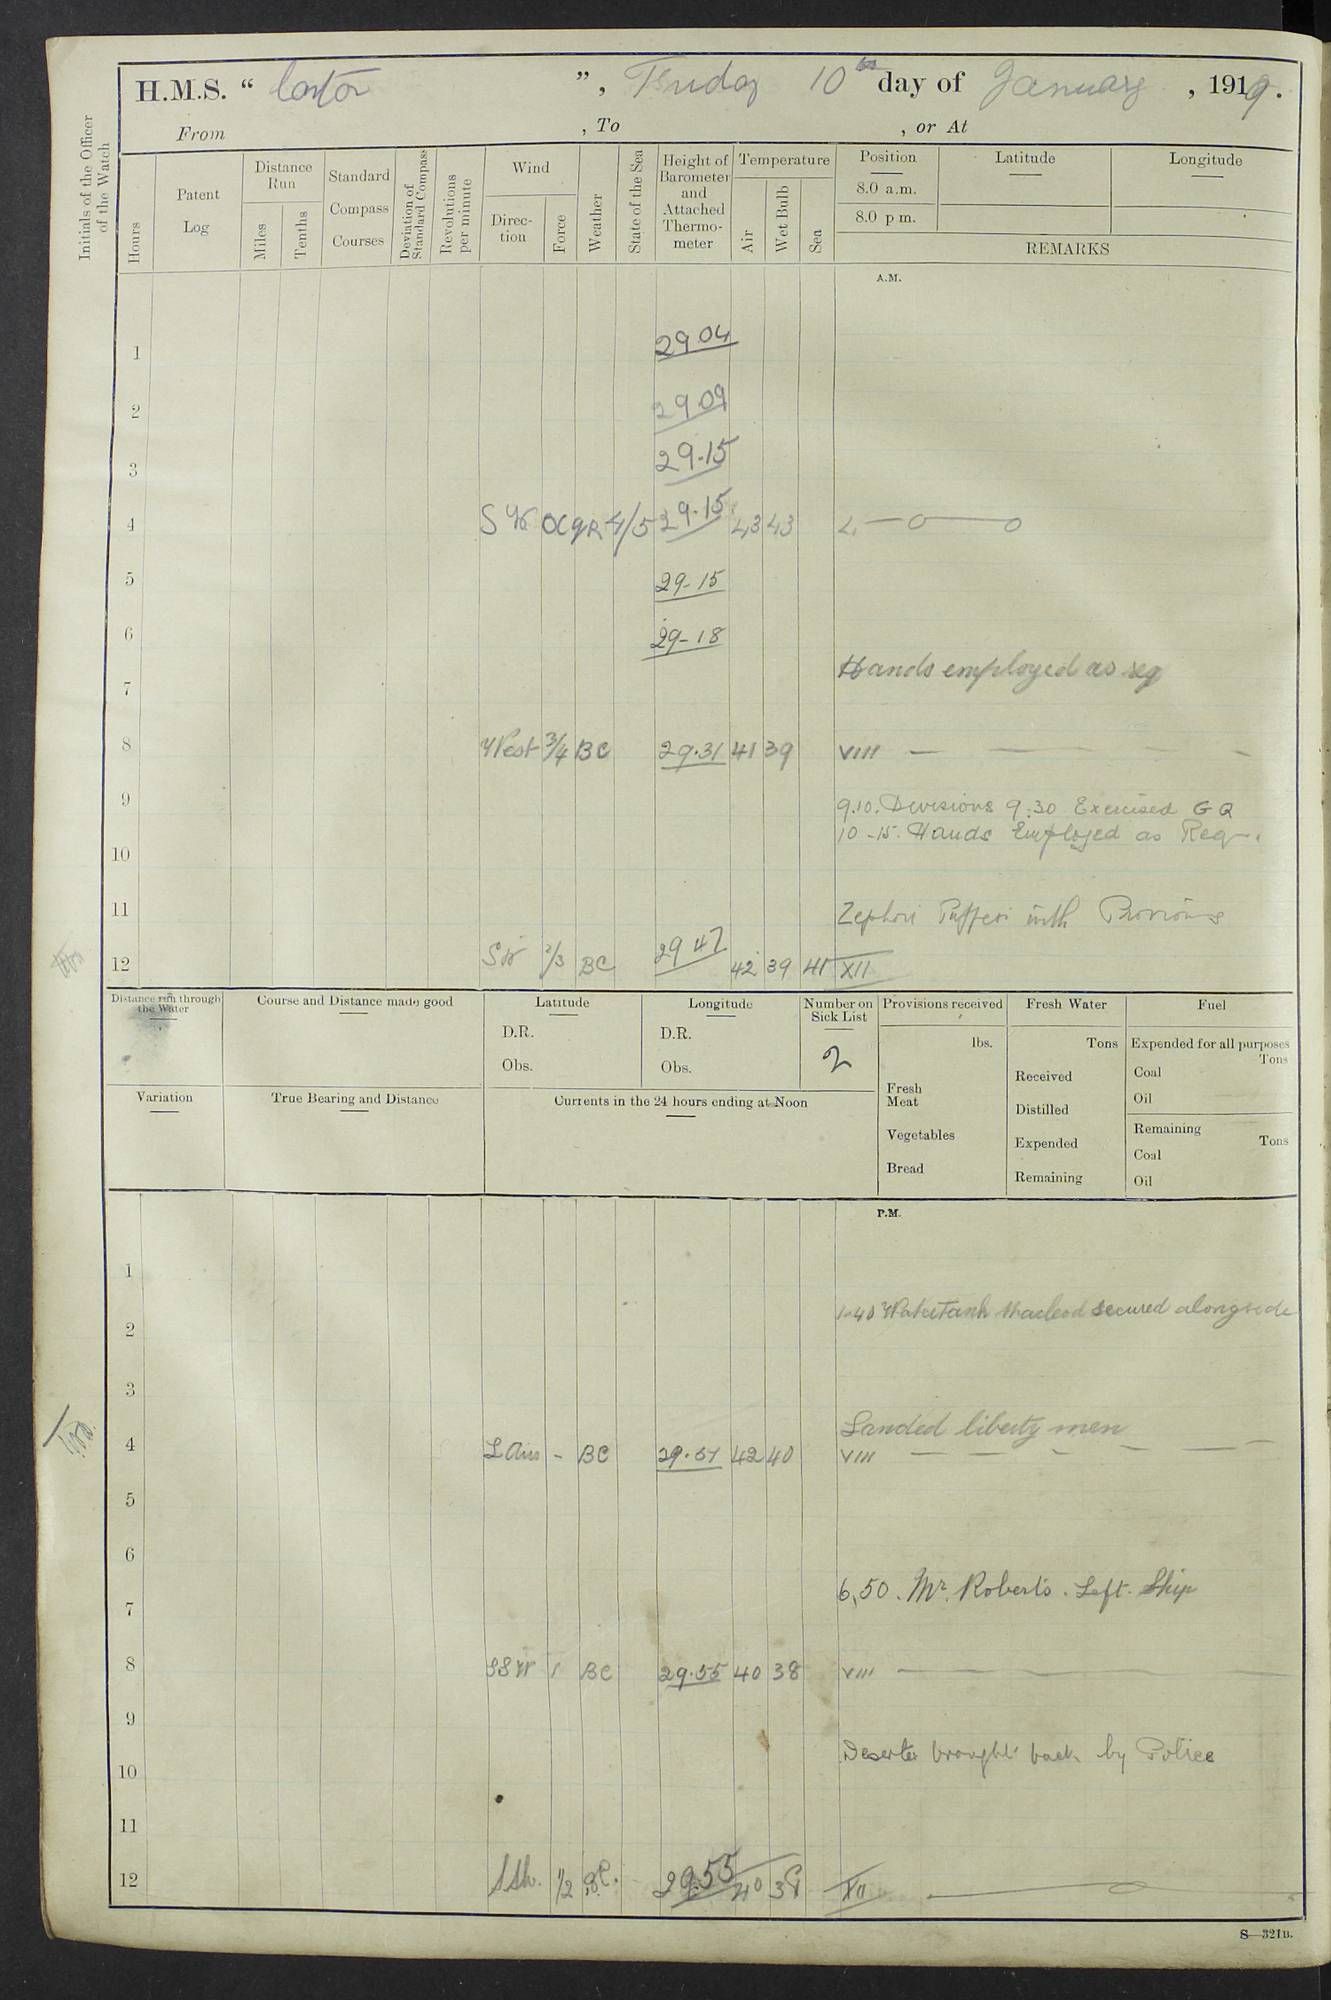 H.M.S. “ Castor ”, Friday 10th day of January, 1919.
From , To , or At
Initials of the Officer of the Watch
Hours
Patent Log
Distance Run
Miles
Tenths
Standard Compass Courses
Deviation of Standard Compass
Revolutions per minute
Wind
Direc-tion
Force
Weather
State of the Sea
Height of Barometer and Attached Thermo-meter
Temperature
Air
Wet Bulb
Sea
Position
Latitude
Longitude
8.0 a.m.
8.0 p m.
REMARKS
A.M.
1 29.04
2 29.09
3 29.15
4 SW 4/5 29.15 43 43
5 29-15
6 29-18
Hands employed as req
7
8 West 3/4 BC 29.31 41 39 VIII
9 9.10. Divisions 9.30 Exercised G Q
10-15. Hands Employed as Req.
10
11 Puffer with
12 SW 2/3 BC 29 47 42 39 41 XII
Distance run through the Water
Course and Distance made good
Latitude
D.R.
Obs.
Longitude
D.R.
Obs.
Number on Sick List
2
Provisions received
lbs.
Fresh Meat
Vegetables
Bread
Fresh Water
Tons
Received
Distilled
Expended
Remaining
Fuel
Expended for all purposes
Tons
Coal
Oil
Remaining
Tons
Coal
Oil
Variation
True Bearing and Distance
Currents in the 24 hours ending at Noon
P.M.
1
1-40 Water Tank Macleod secured alongside
2
3
Landed liberty men
4 L Airs - BC 29.51 42 40 VIII
5
6
6.50. Mr. Roberts. Left. Ship
7
8 SSW 1 BC 29.55 40 38 VIII
9
Deserter brought back by Police
10
11
12 1/2 29.55 40 XII
S—321B.